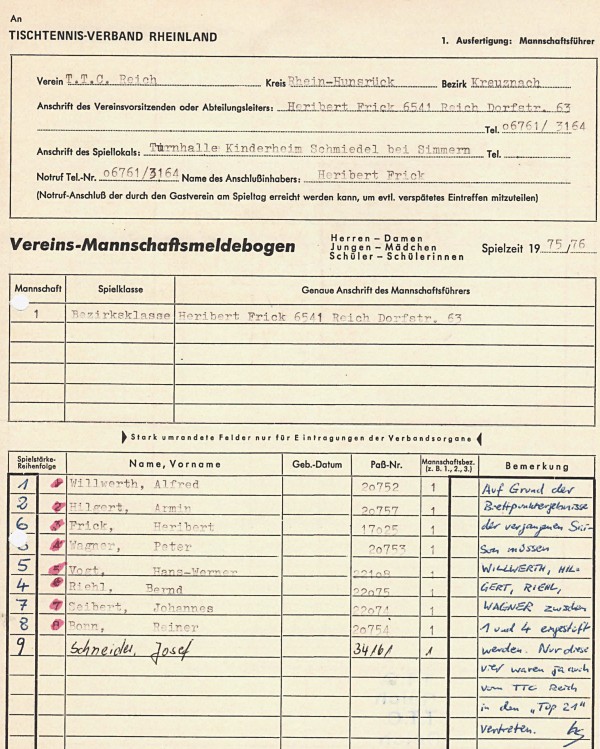 An
TISCHTENNIS-VERBAND RHEINLAND
1. Ausfertigung: Mannschaftsführer
Verein T.T.C. Reich Kreis Rhein-Hunsrück Bezirk Kreuznach
Anschrift des Vereinsvorsitzenden oder Abteilungsleiters: Heribert Frick 6541 Reich Dorfstr. 63
Tel. 06761/ 3164
Anschrift des Spiellokals: Turnhalle Kinderheim Schmiedel bei Simmern Tel.
Notruf Tel.-Nr. 06761/3164 Name des Anschlußinhabers: Heribert Frick
(Notruf-Anschluß der durch den Gastverein am Spieltag erreicht werden kann, um evtl. verspätetes Eintreffen mitzuteilen)
Vereins-Mannschaftsmeldebogen
Herren – Damen
Jungen – Mädchen
Schüler – Schülerinnen
Spielzeit 19 75/76
Mannschaft Spielklasse Genaue Anschrift des Mannschaftsführers
1 Bezirksklasse Heribert Frick 6541 Reich Dorfstr. 63
Stark umrandete Felder nur für Eintragungen der Verbandsorgane
Spielstärke-Reihenfolge Name, Vorname Geb.-Datum Paß-Nr. Mannschaftsbez. (z. B. 1., 2., 3.) Bemerkung
1 1 Willwerth, Alfred 20752 1
2 2 Hilgert, Armin 20757 1
6 3 Frick, Heribert 17025 1
3 4 Wagner, Peter 20753 1
5 5 Vogt, Hans-Werner 22108 1
4 6 Riehl, Bernd 22075 1
7 7 Seibert, Johannes 22074 1
8 8 Bonn, Reiner 20754 1
9 Schneider, Josef 34161 1
Auf Grund der
Brettpunktergebnisse
der vergangenen Sai-
son müssen
WILLWERTH, HIL-
GERT, RIEHL,
WAGNER zwischen
1 und 4 eingestuft
werden. Nur diese
vier waren ja auch
vom TTC Reich
in den „Top 21"
vertreten.